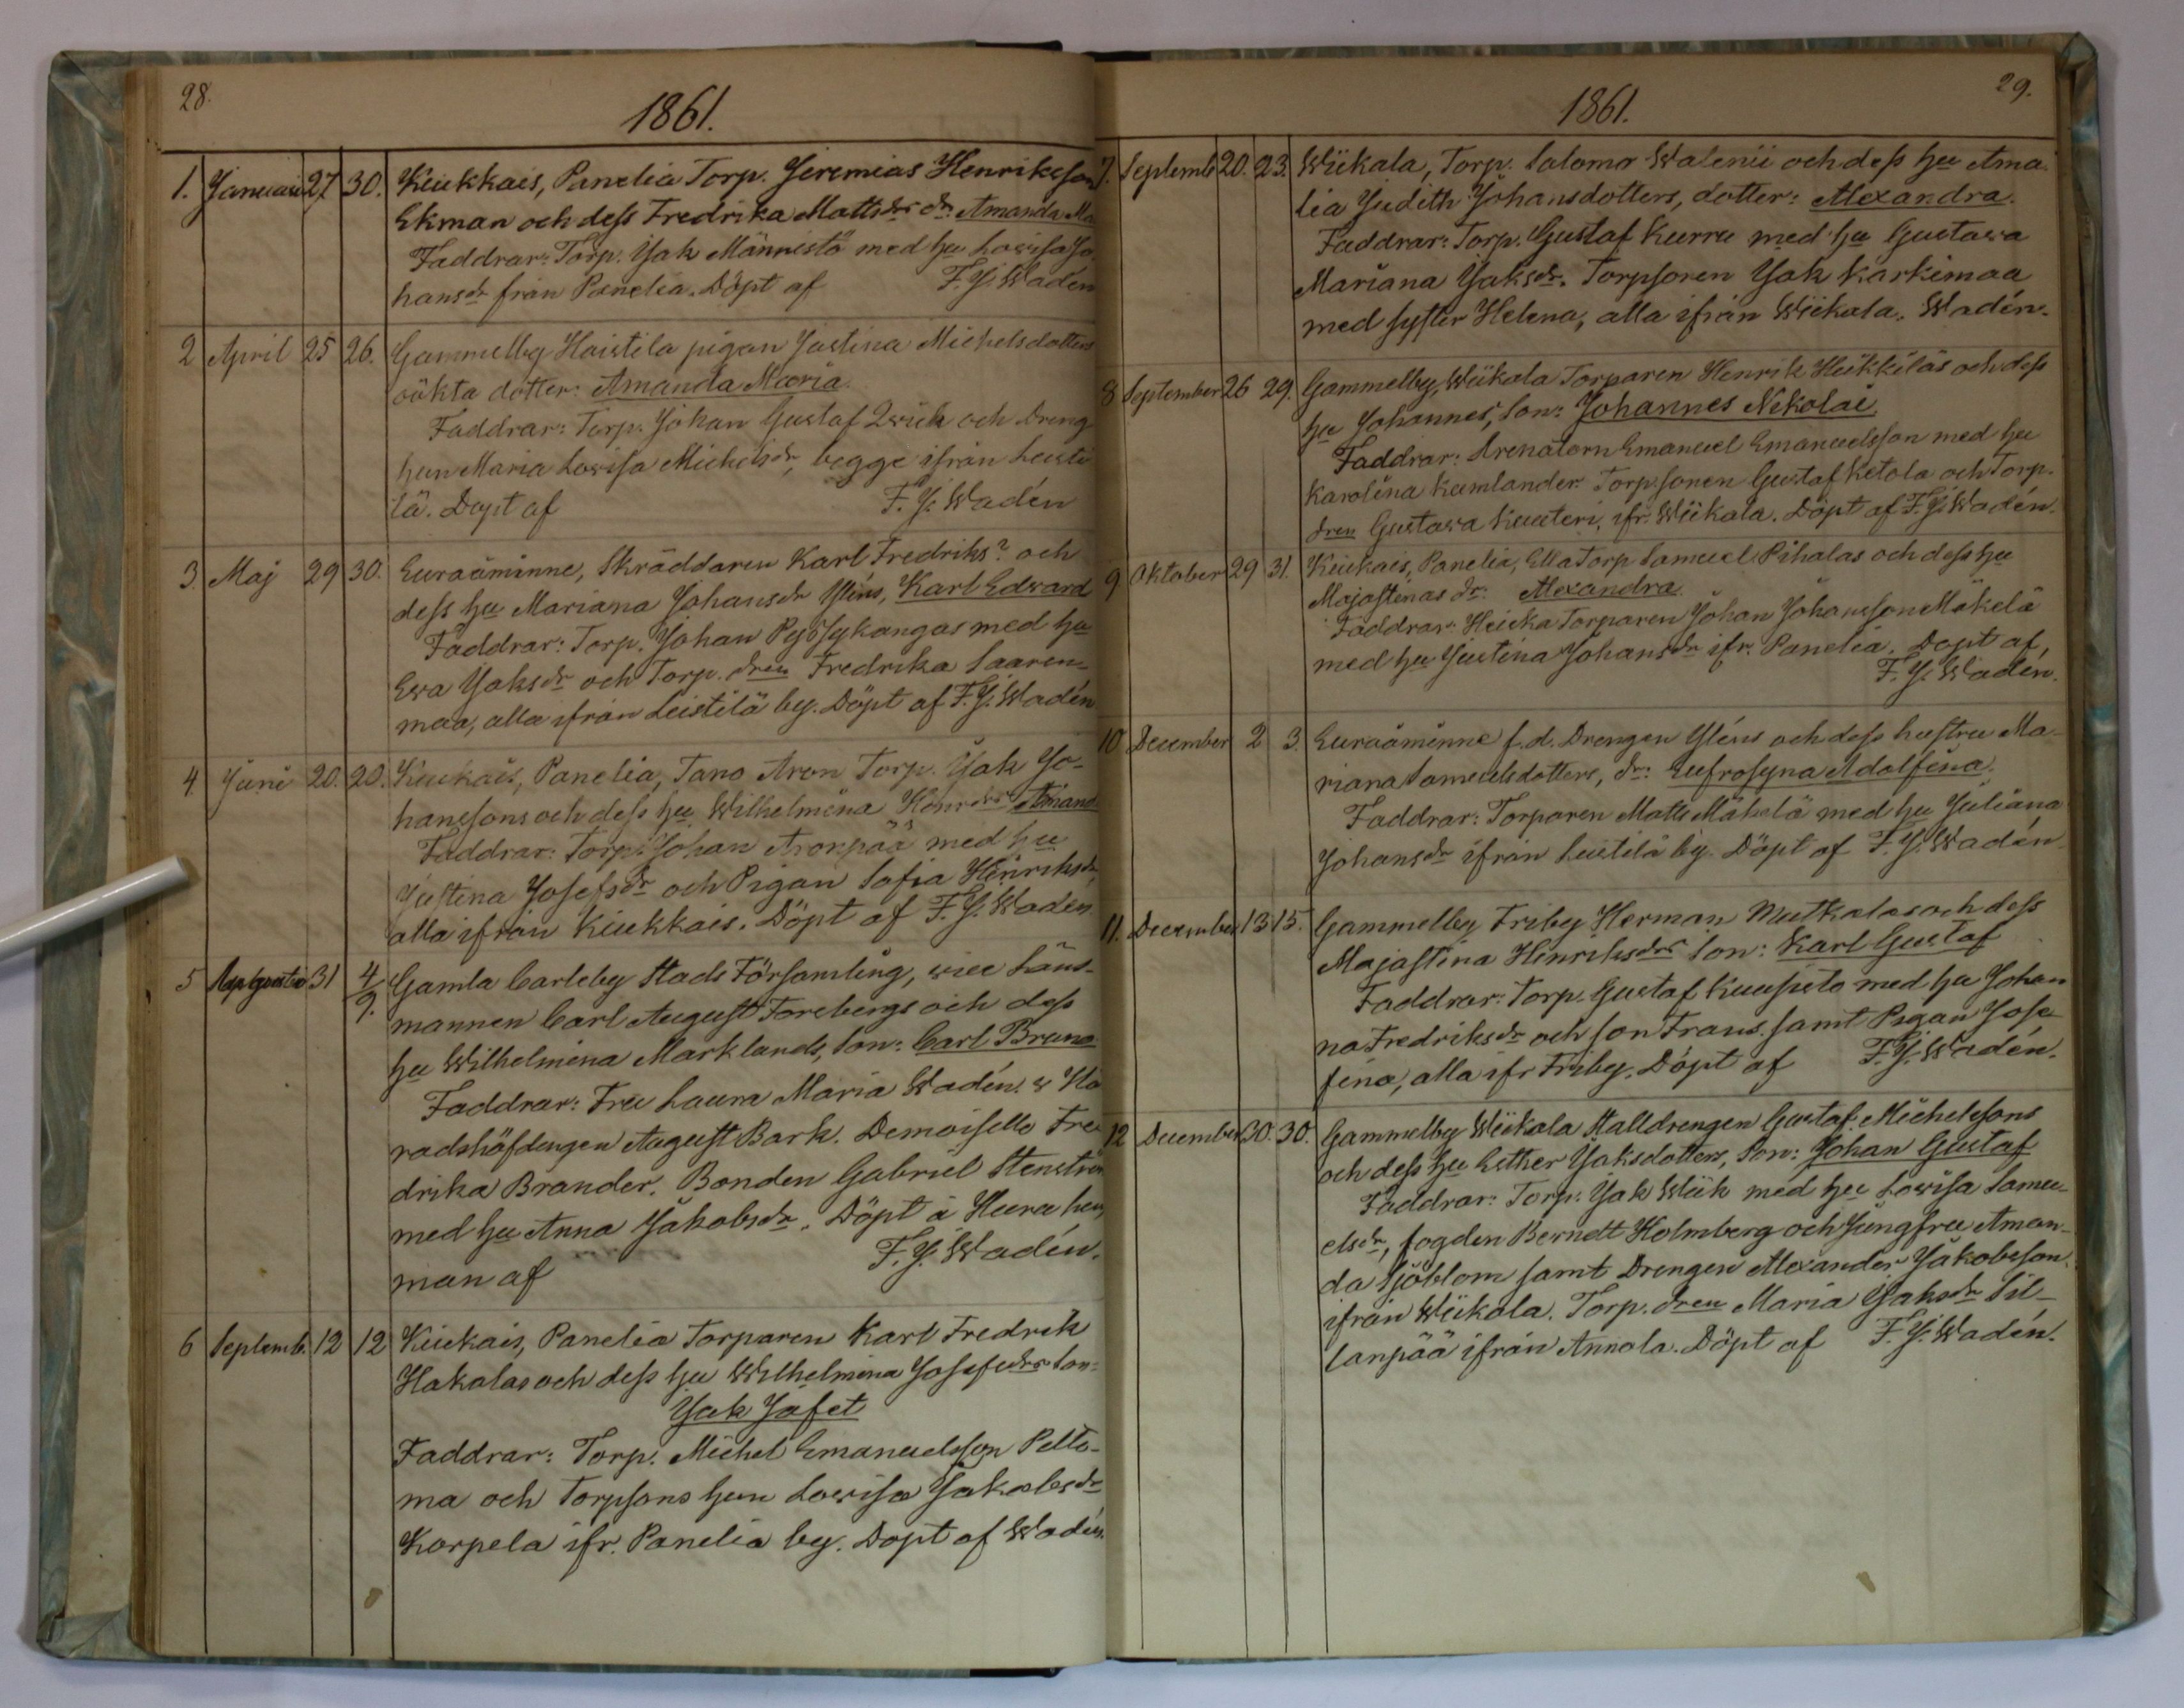 28.
1861.
1. Januari 27 30. Kiukkais, Panelia Torp. Jeremias Henriksson
Ekman och dess Fredrika Mattsdrs dr: Amanda Ma
Faddrar: Torp. Jak Männistö med hu Lovisa Jo
hansdr från Panelia. Döpt af F. J. Wadén
2 April 25 26. Gammelby Haistila pigan Justina Michelsdotters
oäkta dotter: Amanda Maria.
Faddrar: Torp. Johan Gustaf och Dreng
hun Maria Lovisa Michelsdr, begge ifrån Leisti
lä. Döpt af F. J. Wadén
3. Maj 29 30. Euraåminne, Skräddaren Karl Fredriks? och
dess hu Mariana Johansdr Yléns, Karl Edvard
Faddrar: Torp. Johan Pyösykangas med hu
Eva Jaksdr och Torp. dren Fredrika Saaren-
maa, alla ifrån Leistilä by. Döpt af F. J. Wadén
4. Juni 20. 20. Kiukais, Panelia, Tano Aron Torp. Jak Jo-
hanssons och dess hu Wilhelmina Amand
Faddrar: Torp. Johan Aronpää med hu
Justina Josefsdr och Pigan Sofia Henriksdr,
alla ifrån Kiukkais. Döpt af F. J. Wadén
5 Augusti 31 4/9. Gamla Carleby Stads Församling, vice Läns-
mannen Carl August Forsbergs och dess
hu Wilhelmina Marklands, Son: Carl Bruno
Faddrar: Fru Laura Maria Wadén. v Hä
radshöfdingen August Bark. Demoiselle Fre
drika Brander. Bonden Gabriel Stenström
med hu Anna Jakobsdr. Döpt å hem
man af F. J. Wadén.
6 Septemb. 12 12 Kiukais, Panelia Torparen Karl Fredrik
Hakalas och dess hu Wilhelmina Josefsdrs Son:
Jak Jafet
Faddrar: Torp. Michel Emanuelsson Pelto-
ma och Torpsons hun Lovisa Jakobsdr
Korpela ifr. Panelia by. Döpt af Wadén.
29.
1861.
7. Septemb 20. 23. Wiikala, Torp. Salomo Walenii och dess hu Ama
lia Judith Johansdotters, dotter: Alexandra.
Faddrar: Torp. Gustaf Kurru med hu Gustava
Mariana Jaksdr. Torpsonen Jak Karkimaa
med syster Helena, alla ifrån Wiikala. Wadén.
8 September 26 29. Gammelby, Wiikala Torparen Henrik Heikkiläs och dess
hu Johannes, Son: Johannes Nikolai.
Faddrar: Arenatorn Emanuel Emanuelsson med hu
Karolina Kumlander. Torp.sonen Gustaf Ketola och Torp.
dren Gustava Kuuteri, ifr. Wiikala. Döpt af F. J. Wadén.
9 Oktober 29 31. Kiukais, Panelia, Ella Torp Samuel Pihalas och dess hu
Majastinas dr: Alexandra.
Faddrar: Heicka Torparen Johan Johansson Mäkelä
med hu Justina Johansdr ifr. Panelia. Döpt af,
F. J. Wadén.
10 December 2 3. Euraåminne f.d. Drengen Yléns och dess hustru Ma-
riana Samuelsdotters, dr: Eufrosyna Adolfina.
Faddrar: Torparen Matts Mäkelä med hu Juliana
Johansdr ifrån Leistilä by. Döpt af F. J. Wadén.
11. December 13 15. Gammelby Friby Herman Mutkalas och dess
Majastina Hinriksdrs Son: Karl Gustaf
Faddrar: Torp. Gustaf Kuusisto med hu Johan
na Fredriksdr och son Frans. samt Pigan Jose
fina, alla ifr Friby. Döpt af F. J. Wadén.
12 December 30. 30. Gammelby Wiikala Stalldrengen Gustaf Michelssons
och dess hu Esther Jaksdotters, Son: Johan Gustaf
Faddrar: Torp. Jak Wiik med hu Lovisa Samu-
elsdr, fogden Berndt Holmberg och Jungfru Aman-
da Sjöblom samt Drengen Alexander Jakobsson.
ifrån Wiikala. Torp. dren Maria Jaksdr Sil-
lanpää ifrån Annola. Döpt af F. J. Wadén.